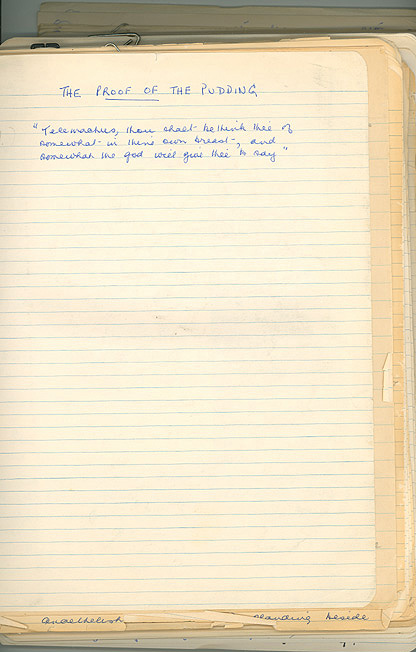 THE PROOF OF THE PUDDING
"Telemachus, thou shalt bethink thee of
somewhat in thine own breast, and
somewhat the god will give thee to say"
standing beside